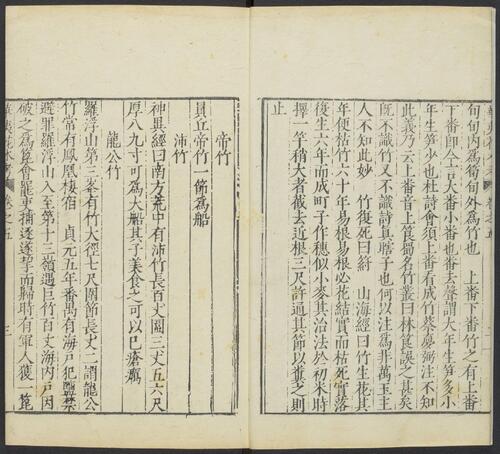 旬旬内為筍旬外為竹也　上番下番竹之有上番
下番即今言大番小番也番去聲謂大年生笋多小
年生笋少也杜詩會須上番看成竹蔡夢弼注不知
此義乃云上番音上筤蜀名竹叢曰林筤謬之甚矣
既不識竹又不識詩真瞎子也何以注為非萬玉主
人不知此妙　竹復死曰䈙　山海經曰竹生花其
年便枯竹六十年易根易根必花結實而枯死實落
復生六年而成町子作穗似小麥其治法於初米時
擇一竿稍大者截去近根三尺許通其節以糞之則
止
帝竹
員丘帝竹一節為船
沛竹
神異經曰南方荒中有沛竹長百丈圍三丈五六尺
厚八九寸可為大船其子美食之可以已瘡癘
龍公竹
羅浮山第三峯有竹大徑七尺圍節長丈二謂龍公
竹常有鳳凰棲宿　貞元五年番禺有海戶犯鹽禁
避罪羅浮山入至第十三嶺遇巨竹百丈海內戶因
破之為篾會罷吏捕逐遂挈而歸時有軍人獲一篾
華夷花木考　卷之五　三